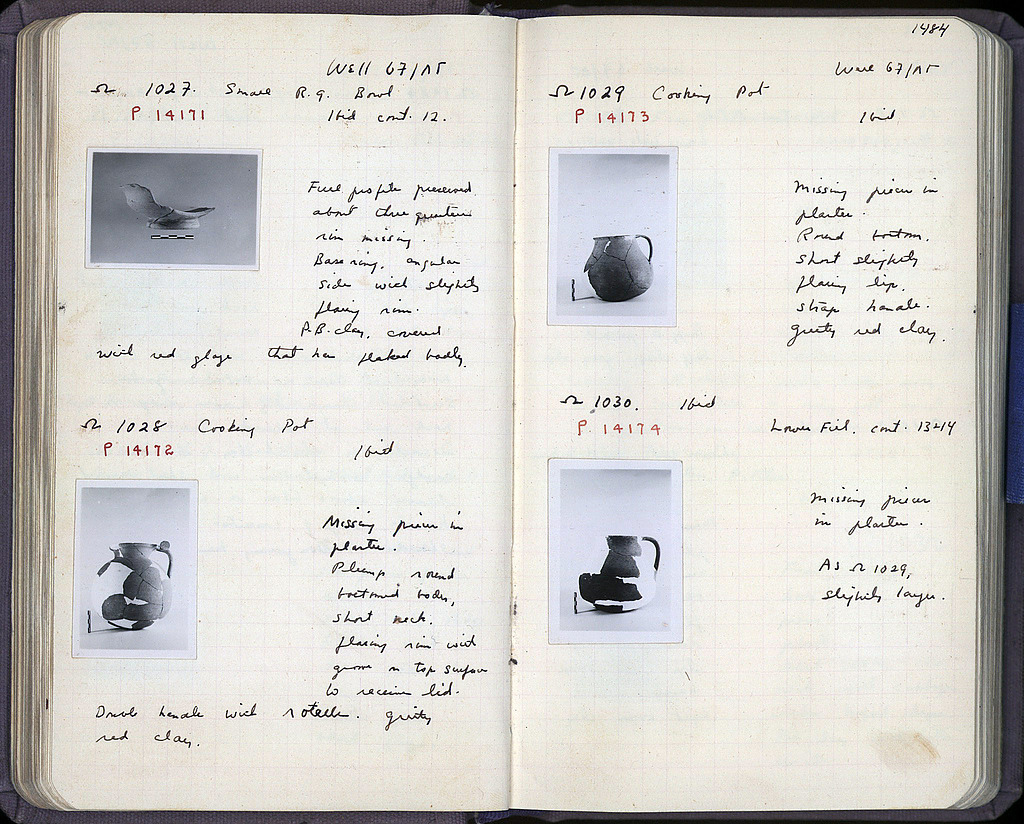 Well 67/ΛΓ
Ω 1027. Small R.g. Bowl
P 14171 Ibid cont. 12.
Full profile preserved
about three quarters
rim missing.
Base ring, angular
side with slightly
flaring rim.
P.B. clay, covered
with red glaze that has flaked badly.
Ω 1028 Cooking Pot
P 14172 Ibid
Missing pieces in
plaster.
Plump round
bottomed body,
short neck.
flaring rim with
groove on top surface
to receive lid.
Double handle with rotelle. gritty
red clay.
1484
Well 67/ΛΓ
Ω 1029 Cooking Pot
P 14173 Ibid
Missing pieces in
plaster.
Round bottom.
short slightly
flaring lip.
strap handle.
gritty red clay.
Ω 1030. Ibid
P 14174 Lower Fill. cont. 13+14
Missing pieces
in plaster.
As Ω 1029,
slightly larger.